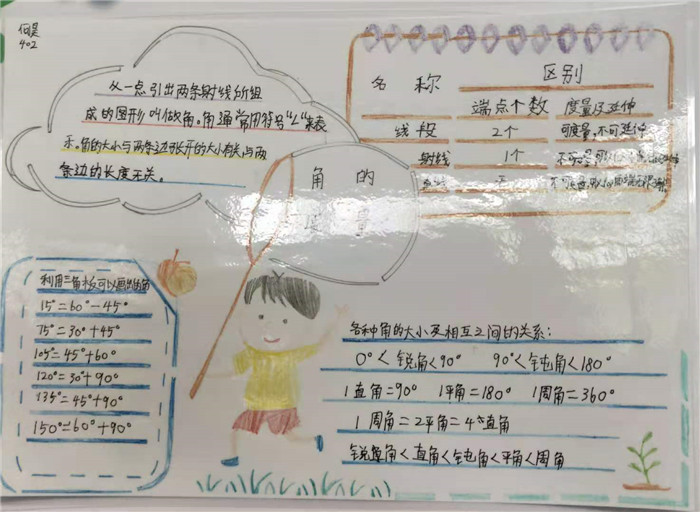 何昊
402
从一点引出两条射线所组
成的图形叫做角。角通常用符号"∠"来表
示。角的大小与两条边张开的大小有关,与两
条边的长度无关。
名称 区别
端点个数 度量及延伸
线段 2个 可度量,不可延伸
射线 1个 不可度量
角的
度量
利用三角板可以画出的角
15°=60°-45°
75°=30°+45°
105°=45°+60°
120°=30°+90°
135°=45°+90°
150°=60°+90°
各种角的大小及相互之间的关系:
0°<锐角<90° 90°<钝角<180°
1直角=90° 1平角=180° 1周角=360°
1周角=2平角=4个直角
锐角<直角<钝角<平角<周角